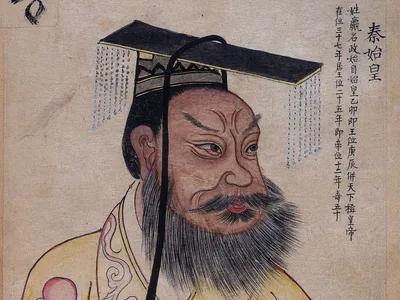 秦始皇
姓嬴名政始自始皇乙卯即王位庚辰併天下稱皇帝
在位三十七年居王位二十五年即帝位十二年壽五十